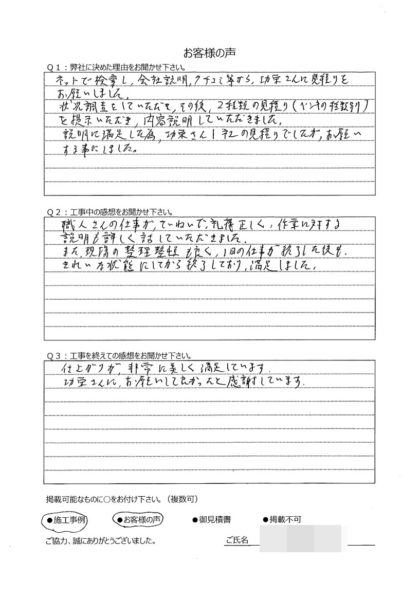 お客様の声
Q1：弊社に決めた理由をお聞かせ下さい。
ネットで検索し、会社説明、クチコミ等から、功栄さんに見積りを
お願いしました。
状況調査をしていただき、その後、2種類の見積り(ペンキの種数別)
を提示いただき、内容説明していただきました。
説明に満足した為、功栄さん1社の見積りでしたが、お願い
する事にしました。
Q2：工事中の感想をお聞かせ下さい。
職人さんの仕事が、ていねいで、礼儀正しく、作業に対する
説明も詳しく話していただきました。
また、現場の整理整頓も良く、1日の仕事が終了した後も、
きれいな状態にしてから終了しており、満足しました。
Q3：工事を終えての感想をお聞かせ下さい。
仕上がりが、非常に美しく満足しています。
功栄さんに、お願いして良かったと感謝しています。
掲載可能なものに○をお付け下さい。（複数可）
●施工事例 ●お客様の声 ●御見積書 ●掲載不可
ご協力、誠にありがとうございました。 ご氏名